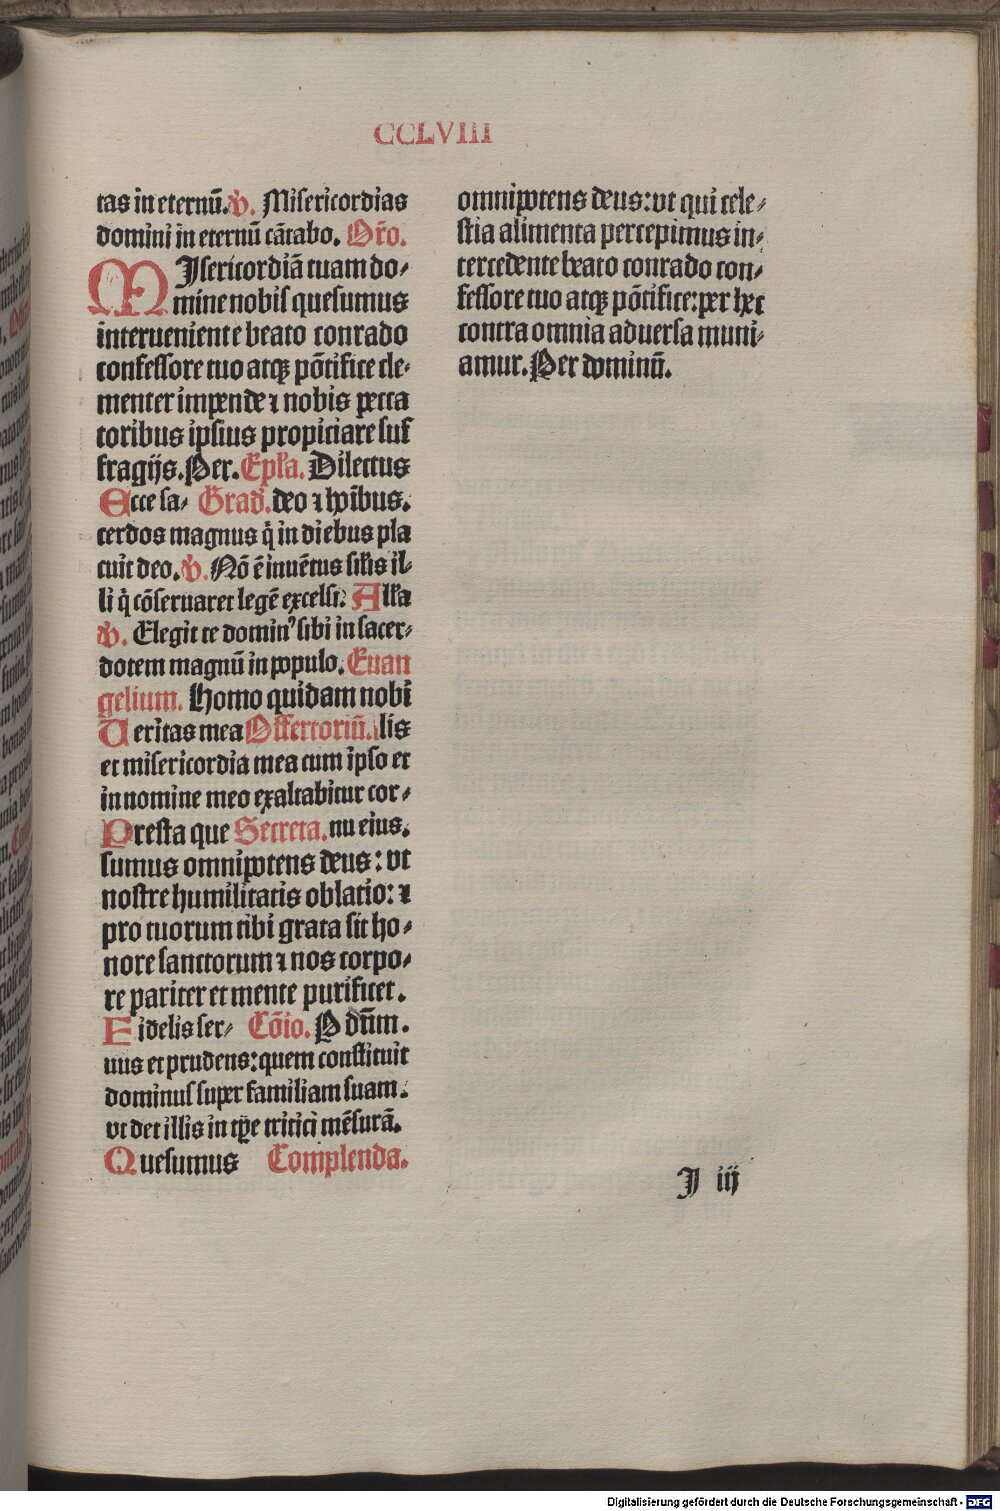 CCLVIII
tas in eternū. ℣. Misericordias
domini in eternū cātabo. Or̄o.
MIsericordiā tuam do⸗
mine nobis quesumus
interueniente beato conrado
confessore tuo atqꝫ pōtifice cle⸗
menter impende ⁊ nobis pecca
toribus ipsius propiciare suf
fragijs. Per. Epl̄a. Dilectus
Ecce sa⸗ Grad̄. deo ⁊ hoībus.
cerdos magnus q̄ in diebus pla
cuit deo. ℣. Nō ē inuētus sil̄is il⸗
li q̄ cōseruaret legē excelsi. All̄a
℣. Elegit te dominꝰ sibi in sacer⸗
dotem magnū in populo. Euan
gelium. Homo quidam nobi
Ueritas mea Offertoriū. lis
et misericordia mea cum ipso et
in nomine meo exaltabitur cor⸗
Presta que Secreta. nu eius.
sumus omnipotens deus: vt
nostre humilitatis oblatio: ⁊
pro tuorum tibi grata sit ho⸗
nore sanctorum ⁊ nos corpo⸗
re pariter et mente purificet.
Fidelis ser⸗ Cōio. P dn̄m.
uus et prudens: quem constituit
dominus super familiam suam:
vt det illis in tp̄e tritici mēsurā.
Quesumus Complenda.
omnipotens deus: vt qui cele⸗
stia alimenta percepimus in⸗
tercedente beato conrado con⸗
fessore tuo atqꝫ pōtifice: per hec
contra omnia aduersa muni⸗
amur. Per dominū.
J iij
Digitalisierung gefördert durch die Deutsche Forschungsgemeinschaft - DFG